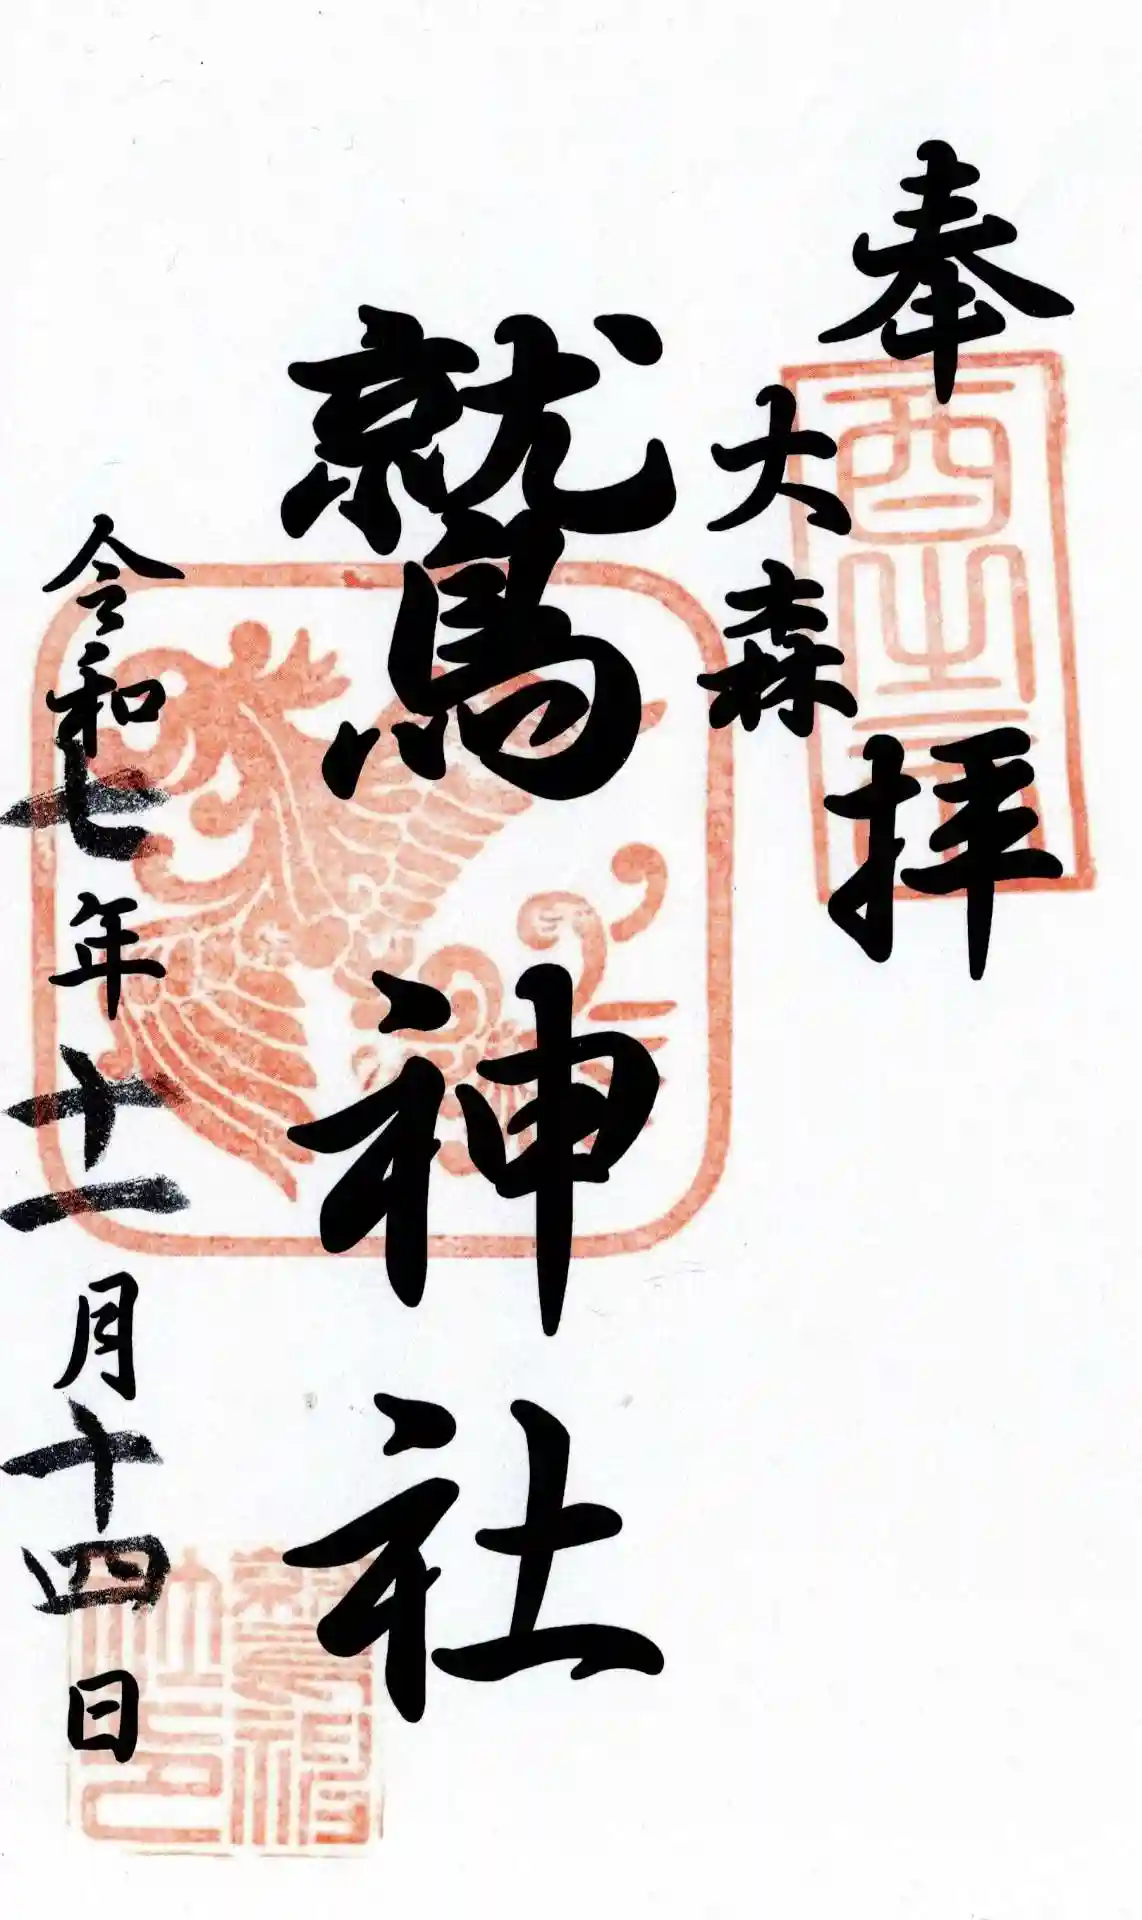 奉拝
大森
鷲神社
令和七年十一月十四日
鷲神社印